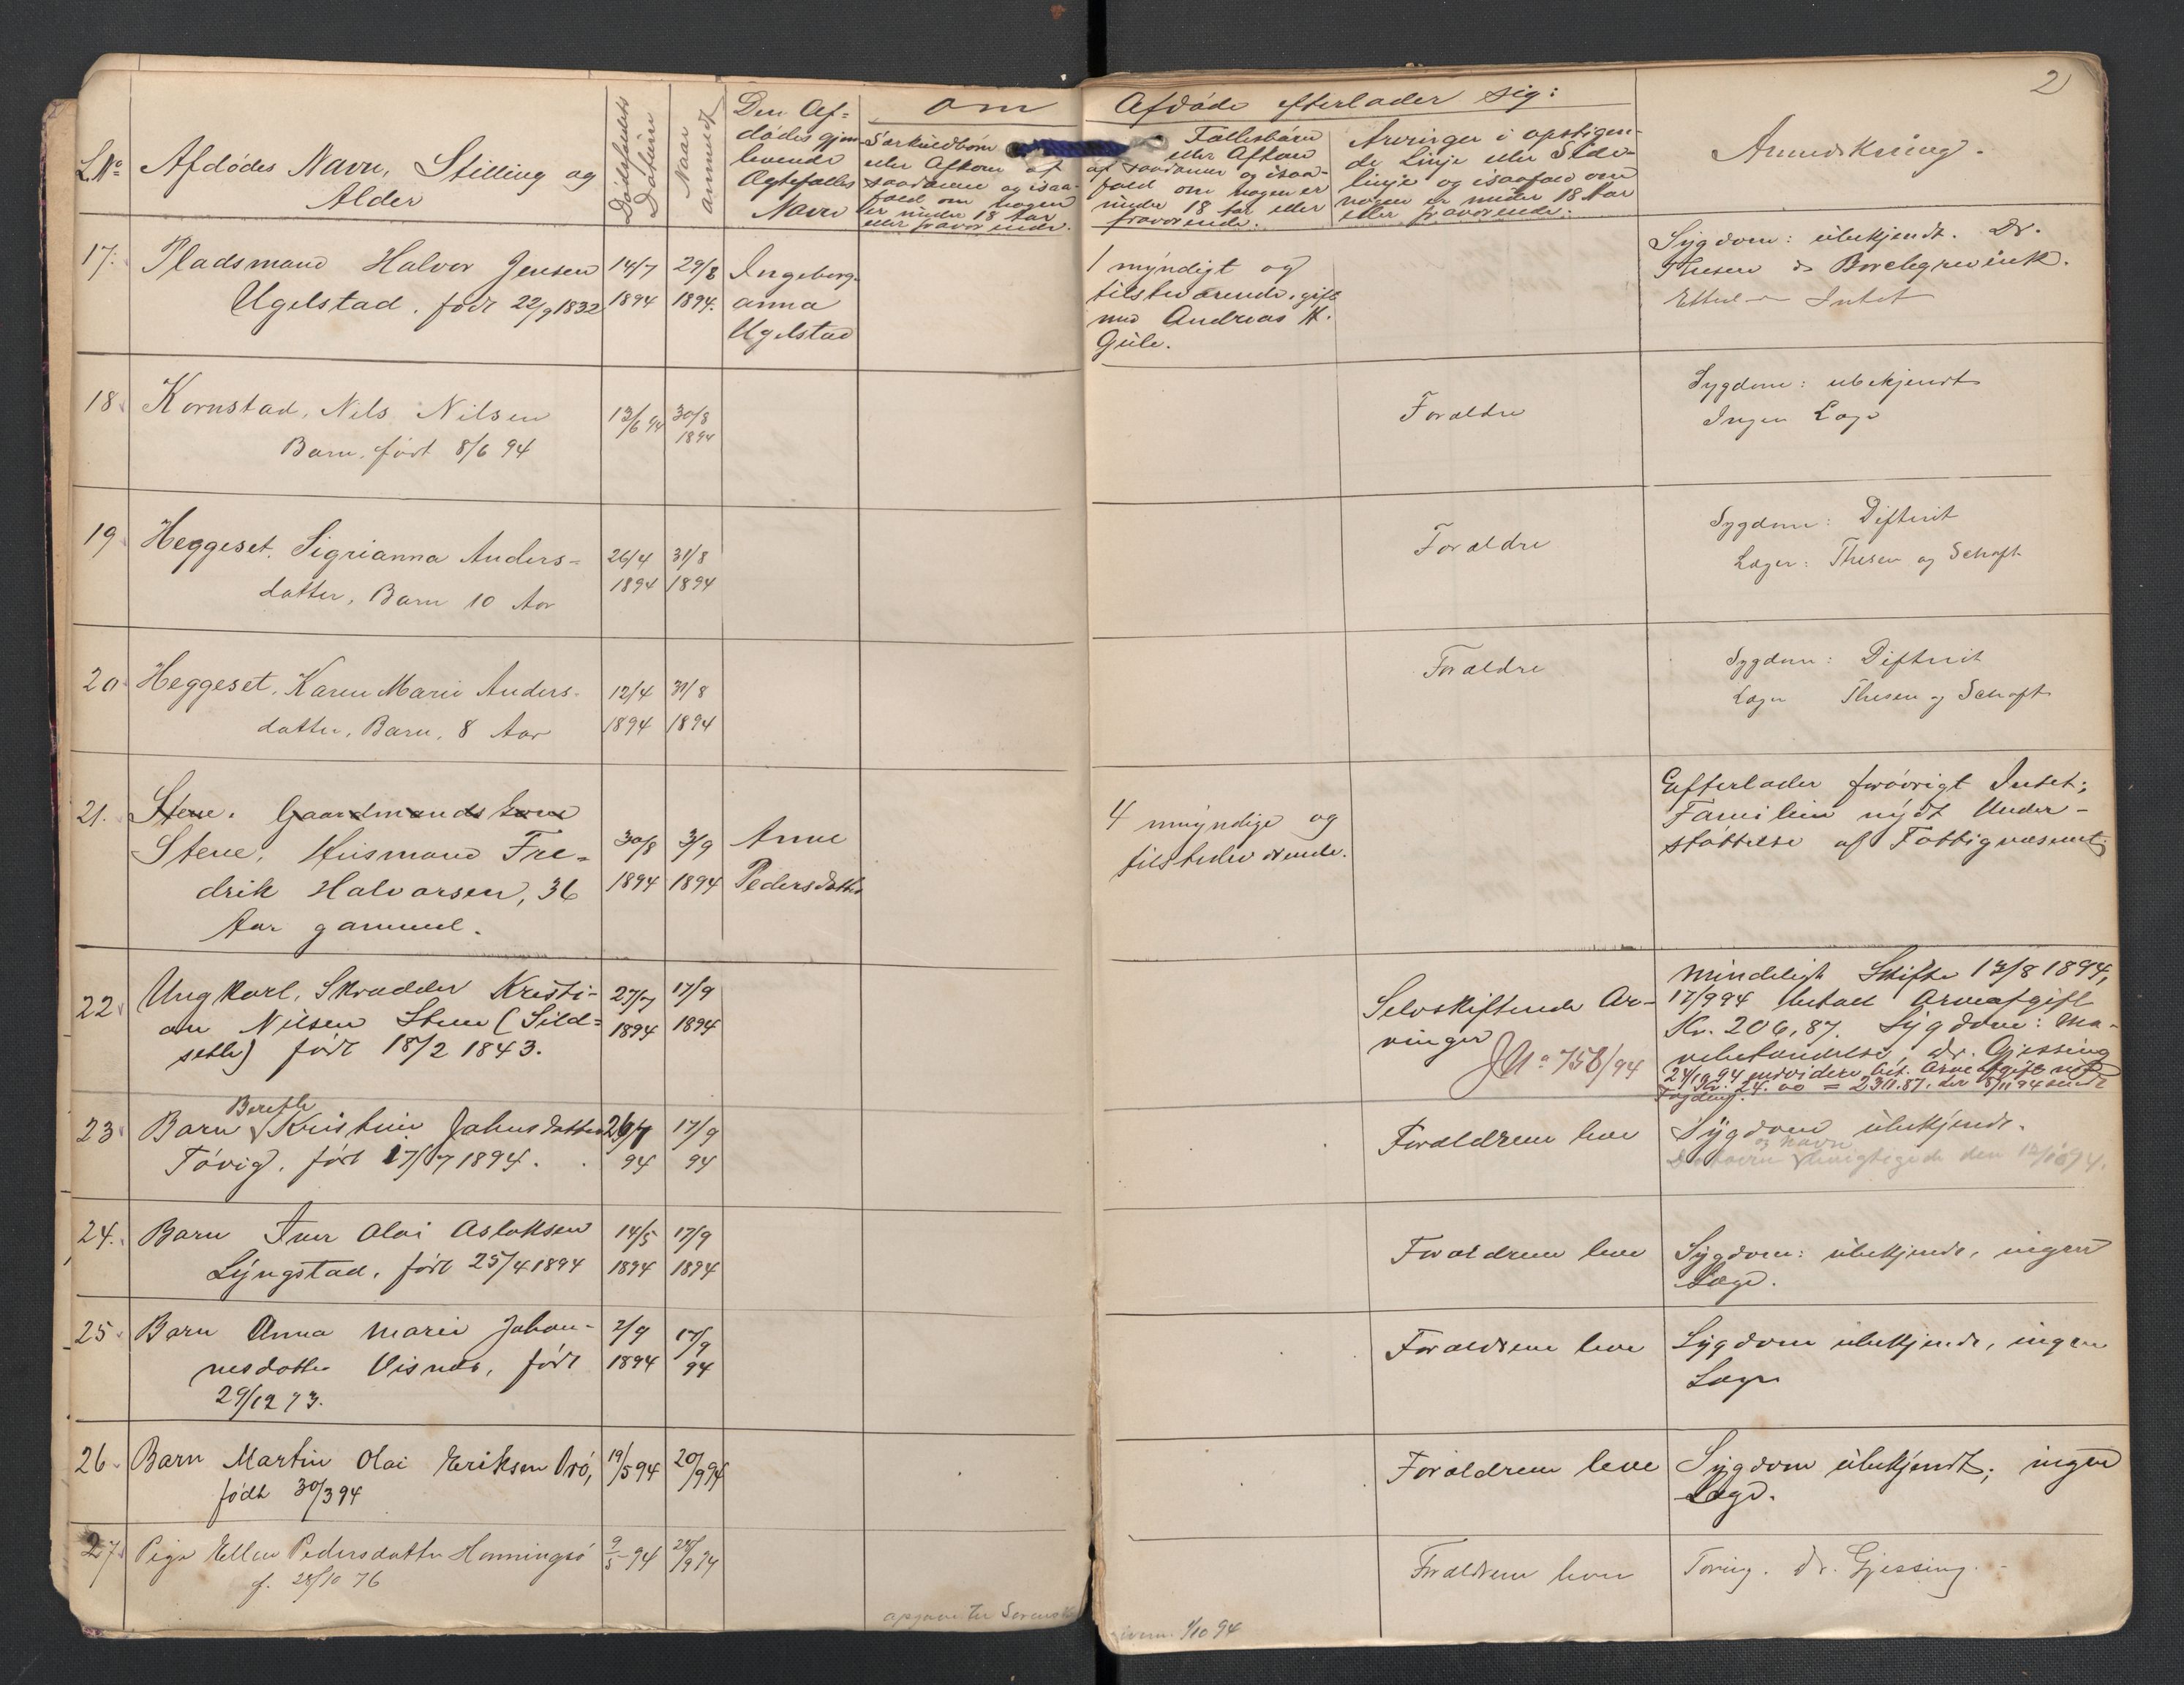 2
L.No
Afdødes Navn, Stilling og
Alder
Dødsfaldets
Datum
Naar
anmeldt
Den Af-
dødes gjen-
levende
Ægtefælles
Navn
om
Afdøde efterlader sig:
Særkuldbørn
eller Afkom af
saadanne og isaa-
fald om nogen
er under 18 Aar
eller fraværende.
Fællesbørn
eller Afkom
af saadanne og isaa-
fald om nogen er
under 18 Aar eller
fraværende.
Arvinger i opstigen-
de Linje eller Side-
linje og isaafald om
nogen er under 18 Aar
eller fraværende:
Anmærkning.
17.
Pladsmand Halvor Jensen
Ugelstad. født 22/9 1832
14/7
1894
29/8
1894.
Ingeborg-
anna
Ugelstad
1 myndigt og
tilstedeværende, gift
med Andreas H.
Gule.
Sygdom: ubekjendt. Dr.
Thesen & Borchgrevink.
Efterl Intet
18
Kornstad, Nils Nilsen
Barn, født 8/6 94
13/6 94
30/8
1894
Forældre
Sygdom: ubekjendt
Ingen Læge
19
Heggeset. Sigrianna Anders-
datter, Barn 10 Aar
26/4
1894
31/8
1894
Forældre
Sygdom: Difterit
Læger: Thesen og Schaft
20
Heggeset, Karen Marie Anders-
datter, Barn, 8 Aar
12/4
1894
31/8
1894
Forældre
Sygdom: Difterit
Læger Thesen og Schaft
21.
Stene. Gaardmands kone
Stene, Husmand Fre-
drik Halvorsen, 36
Aar gammel.
30/8
1894
3/9
1894
Anne
Pedersdatter
4 umyndige og
tilstedeværende.
Efterlader forøvrigt Intet;
Familien nydt Under-
støttelse af Fattigvæsenet.
22
Ungkarl, Skrædder Kristi-
an Nilsen Stene (Sild-
sette) født 18/2 1843.
27/7
1894
17/9
1894
Selvskiftende Ar-
vinger
JNo 758/94
Mindeligt Skifte 13/8 1894,
17/9 94 betalt Arveafgift
Kr. 206,87. Sygdom: Ma-
vebetændelse, dr. Gjessing
24/10 94 endvidere bet. Arveafgift med
Kr. 24.00 = 230.87, der 8/11 94 sendt
Fogden.
23
Berethe
Barn Kristine Johnsdatter
Tøvig. født 17/7 1894.
26/7
94
17/9
94
Forældrene leve
Sygdom ubekjendt.
og Navn
Datoen berigtigede den 12/10 94.
24.
Barn Iver Olai Aslaksen
Lyngstad, født 25/4 1894
14/5
1894
17/9
1894
Forældrene leve
Sygdom: ubekjendt, ingen
Læge.
25
Barn Anna Marie Johan-
nesdatter Visnes, født
29/12 93.
2/9
1894
17/9
94
Forældrene leve
Sygdom ubekjendt, ingen
Læge
26
Barn Martin Olai Eriksen Orø,
født 30/3 94
19/5 94
20/9 94
Forældrene leve
Sygdom ubekjendt; ingen
Læge.
27
Pige Ellen Pedersdatter Honningsø
f. 28/10 76
9/5 94
28/9 94
Forældrene leve
Tæring. Dr. Gjessing.
opgave til Sorensk
1/10 94